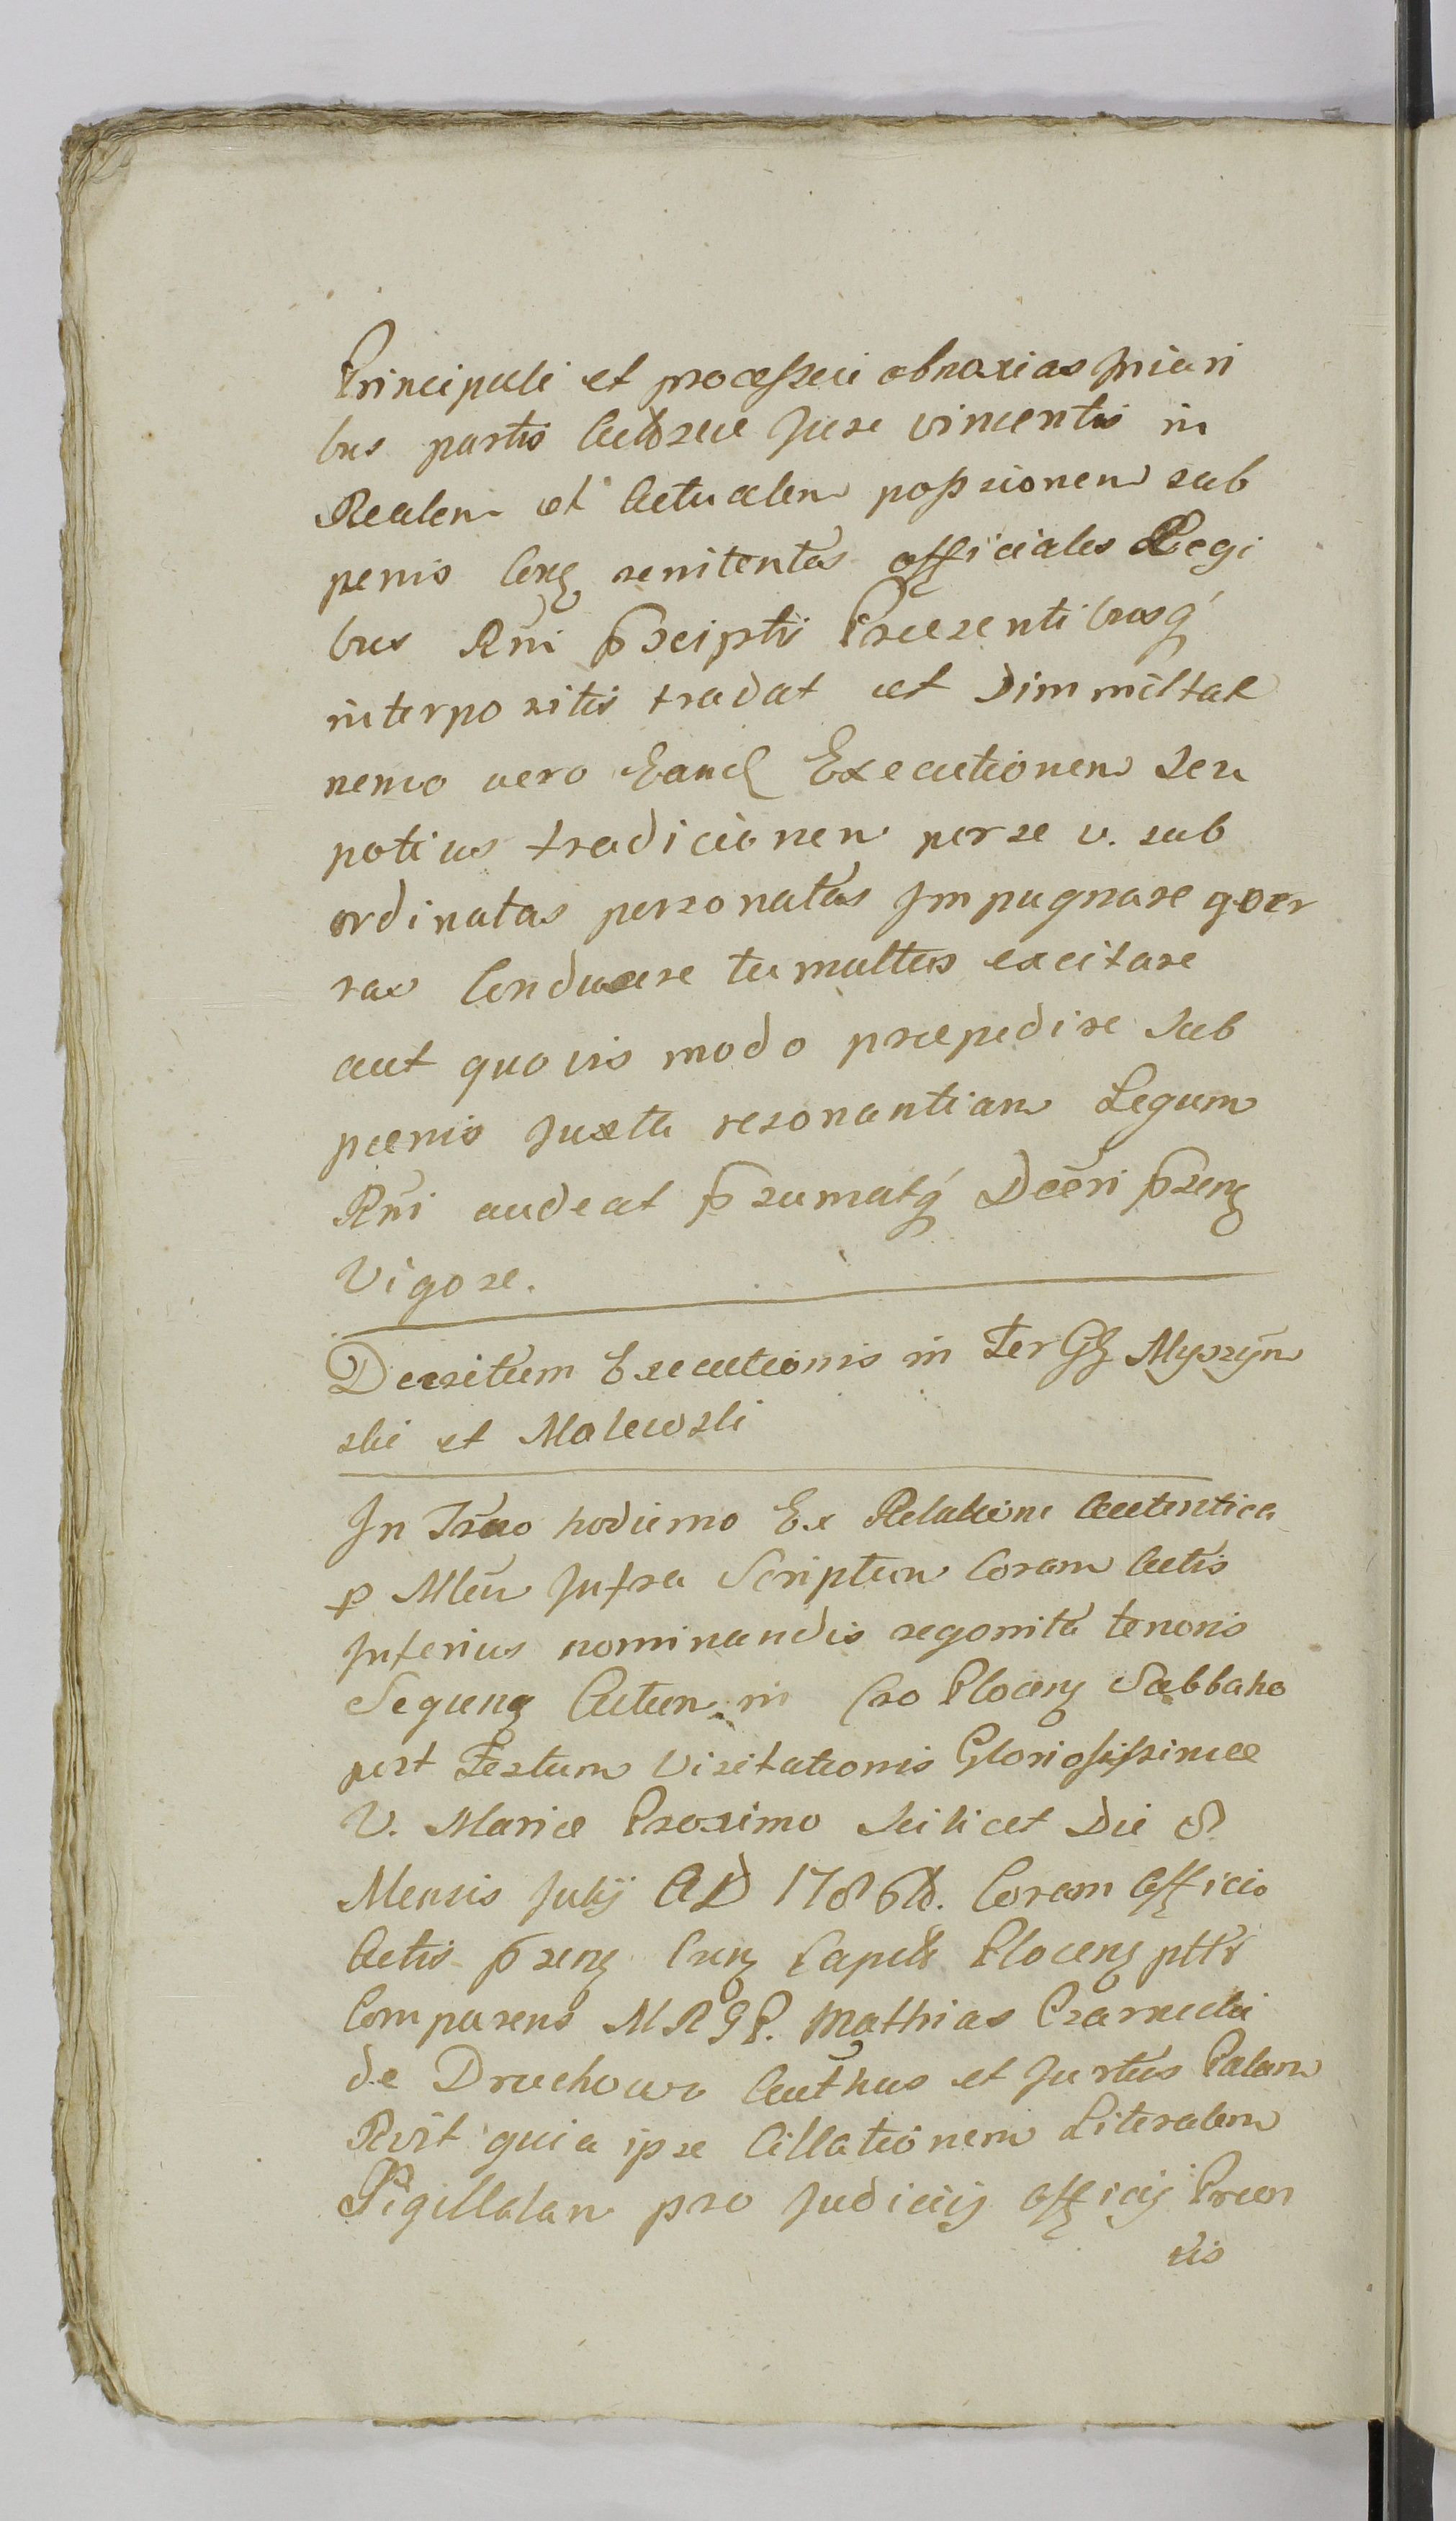 Principali et processui obnoxias Juiari
bus partis Actoreae Jure vincentis in
Realem et Actualem possionem sub
penis Cong renitentes officiales Regi
bus Rni psciptis Praesentibusq
interpositis tradat et Dimmittat
nemo vero Eand Executionem Seu
potius tradicionem per se v. sub
ordinatas personatas Impugnare guer
ras Conducere tumultus excitare
aut quovis modo praepedire Sub
paenis Juxta resonantiam Legum
Rni audeat psumatq Decri pseng
Vigore.
Decretum Executionis in Ter GG Myszyn
ski et Malewski
In Trao hodierno Ex Relatione Autentica
p Mleu Infra Scriptum Coram Actis
Inferius nominandis regonita tenoris
Sequeng Actum in Cro Ploceng Sabbatho
post Festum Visitationis Gloriosissimae
V. Mariae Proximo Scilicet Die 8
Mensis Julij AD 1786to. Coram Officio
Actis pseng Cseng Capeli Ploceng pttr
Comparens MRGP. Mathias Czarnecki
de Drochowo Authus et Jurtus Palam
Rvit quia ipse Cittationem Literalem
Sigillatam pro Judicijs Officij Praen
tis